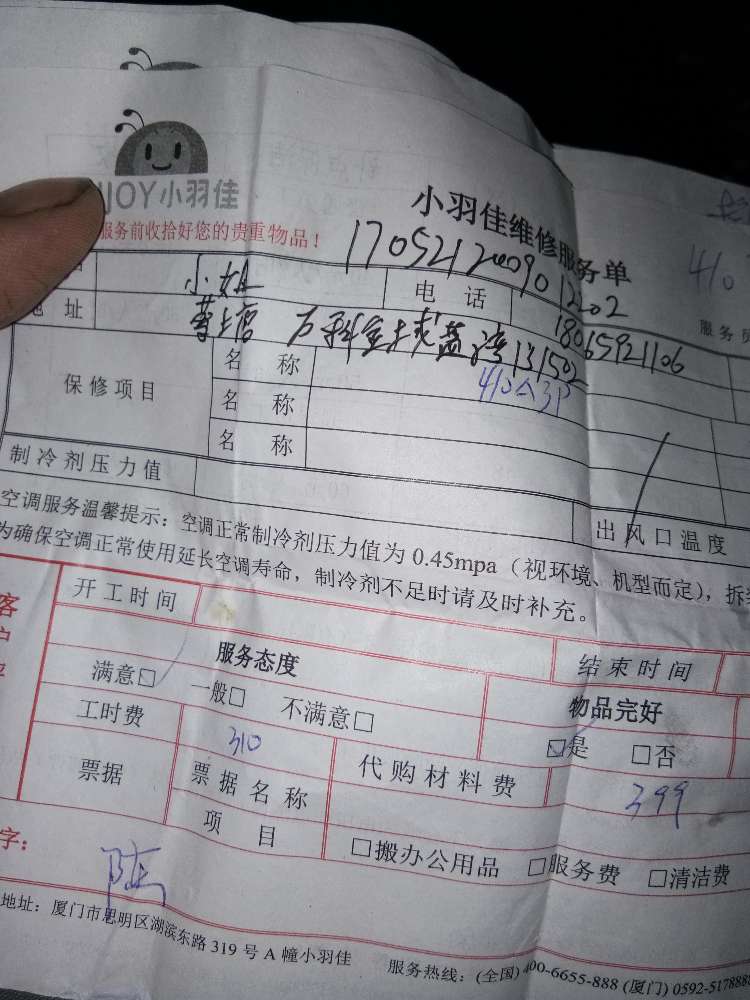 JOY小羽佳
小羽佳维修服务单
服务前收拾好您的贵重物品！
1705212009012202
410
服务员
小姐
电 话
18065921106
地 址
万科金域蓝湾131502
保修项目
名 称
410A3P
名 称
名 称
制冷剂压力值
出风口温度
空调服务温馨提示：空调正常制冷剂压力值为 0.45mpa（视环境、机型而定），拆装
为确保空调正常使用延长空调寿命，制冷剂不足时请及时补充。
开工时间
结束时间
服务态度
物品完好
满意☑ 一般□ 不满意□
☑是 □否
工时费
310
代购材料费
399
票据
票据名称
项 目
□搬办公用品 □服务费 □清洁费
字：
陈
地址：厦门市思明区湖滨东路 319 号 A 幢小羽佳 服务热线：(全国) 400-6655-888 (厦门) 0592-5178888